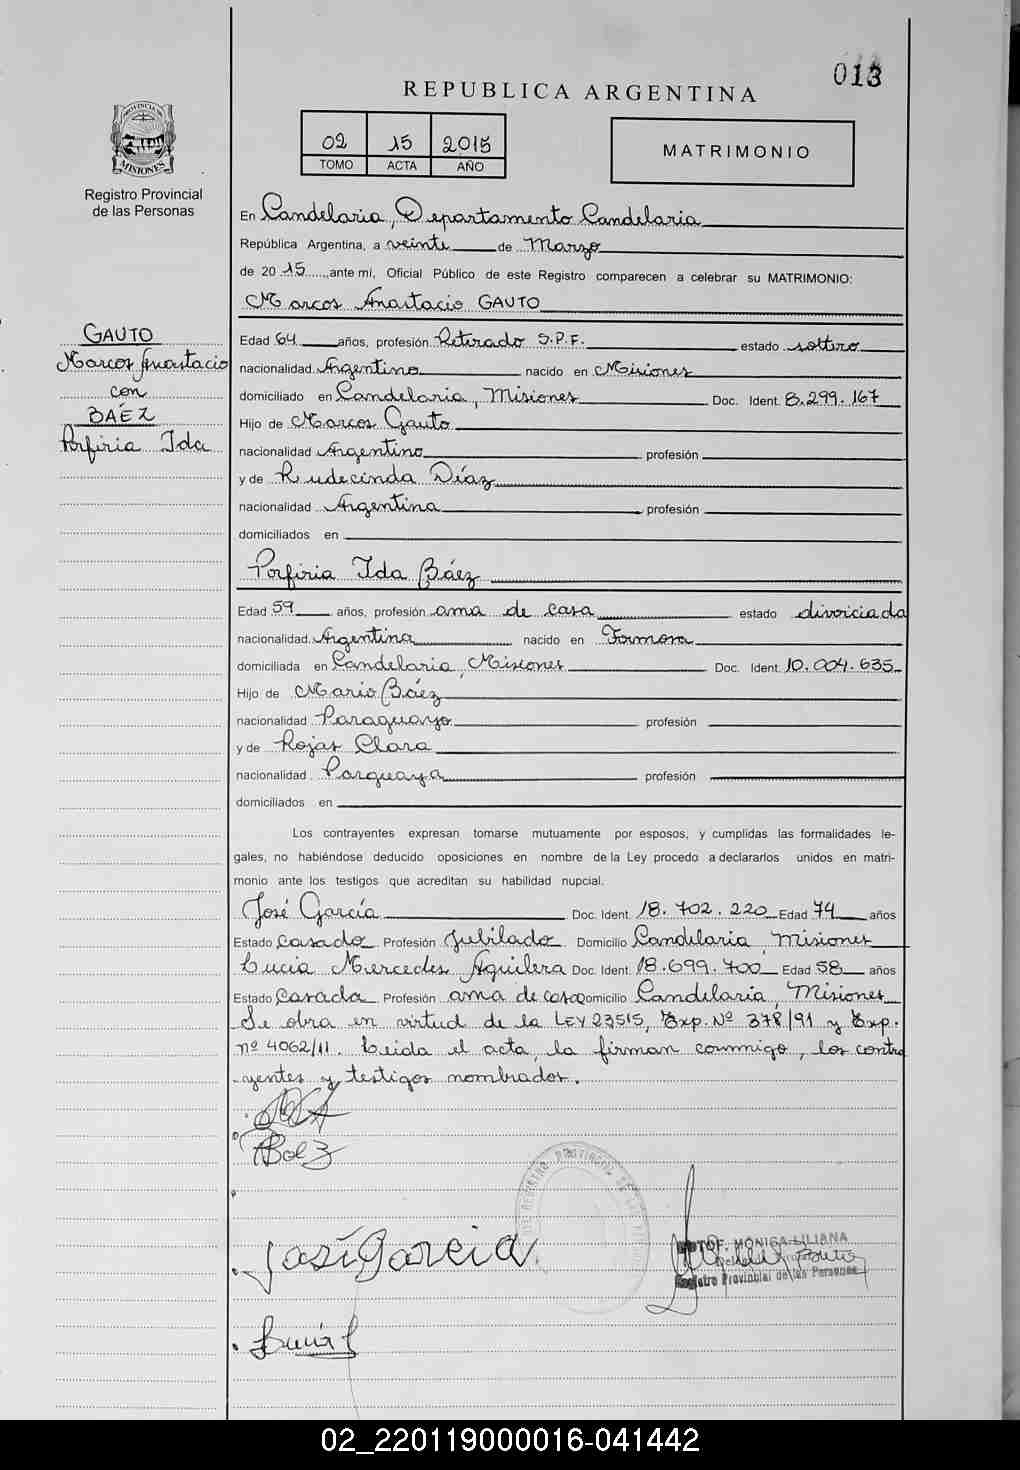 013
REPUBLICA ARGENTINA
02 15 2015
TOMO ACTA AÑO
MATRIMONIO
PROVINCIA DE MISIONES
Registro Provincial
de las Personas
En Candelaria, Departamento Candelaria
República Argentina, a veinte de Marzo
de 2015, ante mí, Oficial Público de este Registro comparecen a celebrar su MATRIMONIO:
Marcos Anastacio GAUTO
GAUTO
Marcos Anastacio
con
BÁEZ
Porfiria Ida
Edad 64 años, profesión Retirado S.P.F. estado soltero
nacionalidad Argentino nacido en Misiones
domiciliado en Candelaria, Misiones Doc. Ident. 8.299.167
Hijo de Marcos Gauto
nacionalidad Argentino profesión
y de Rudecinda Díaz
nacionalidad Argentina profesión
domiciliados en
Porfiria Ida Báez
Edad 59 años, profesión ama de casa estado divorciada
nacionalidad Argentina nacido en Formosa
domiciliada en Candelaria, Misiones Doc. Ident. 10.004.635
Hijo de Mario Báez
nacionalidad Paraguayo profesión
y de Rojas Clara
nacionalidad Parguaya profesión
domiciliados en
Los contrayentes expresan tomarse mutuamente por esposos, y cumplidas las formalidades le-
gales, no habiéndose deducido oposiciones en nombre de la Ley procedo a declararlos unidos en matri-
monio ante los testigos que acreditan su habilidad nupcial.
José García Doc. Ident. 18.702.220 Edad 74 años
Estado Casado Profesión Jubilado Domicilio Candelaria, Misiones
Lucia Mercedes Aguilera Doc. Ident. 18.699.700 Edad 58 años
Estado Casada Profesión ama de casa Domicilio Candelaria, Misiones
Se obra en virtud de la LEY 23515, Exp. Nº 378/91 y Exp.
nº 4062/11. Leida el acta, la firman conmigo, los contra
yentes y testigos nombrados.
Baez
José Garcia
MONICA LILIANA
Registro Provincial de las Personas
Lucia
02_220119000016-041442